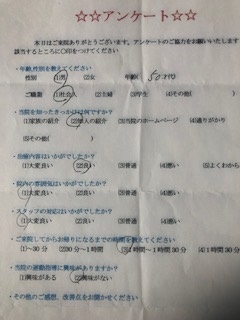 ☆☆アンケート☆☆
本日はご来院ありがとうございます。アンケートのご協力をお願いいたします
該当するところに〇印をつけてください
・年齢,性別を教えてください
性別 (1)男 (2)女 年齢( 50才代
ご職業 (1)社会人 (2)主婦 (3)学生 (4)その他(
・当院を知ったきっかけは何ですか?
(1)家族の紹介 (2)知人の紹介 (3)当院のホームページ (4)通りがかり
(5)その他( )
・治療内容はいかがでしたか?
(1)大変良い (2)良い (3)普通 (4)悪い (5)よくわから
・院内の雰囲気はいかがでしたか?
(1)大変良い (2)良い (3)普通 (4)悪い
・スタッフの対応はいかがでしたか?
(1)大変良い (2)良い (3)普通 (4)悪い
・ご来院してからお帰りになるまでの時間を教えてください
(1)～30分 (2)30分～1時間 (3)1時間～1時間30分 (4)1時間30分
・当院の運動指導に興味がありますか?
(1)興味がある (2)興味がない
・その他のご感想、改善点をお聞かせください